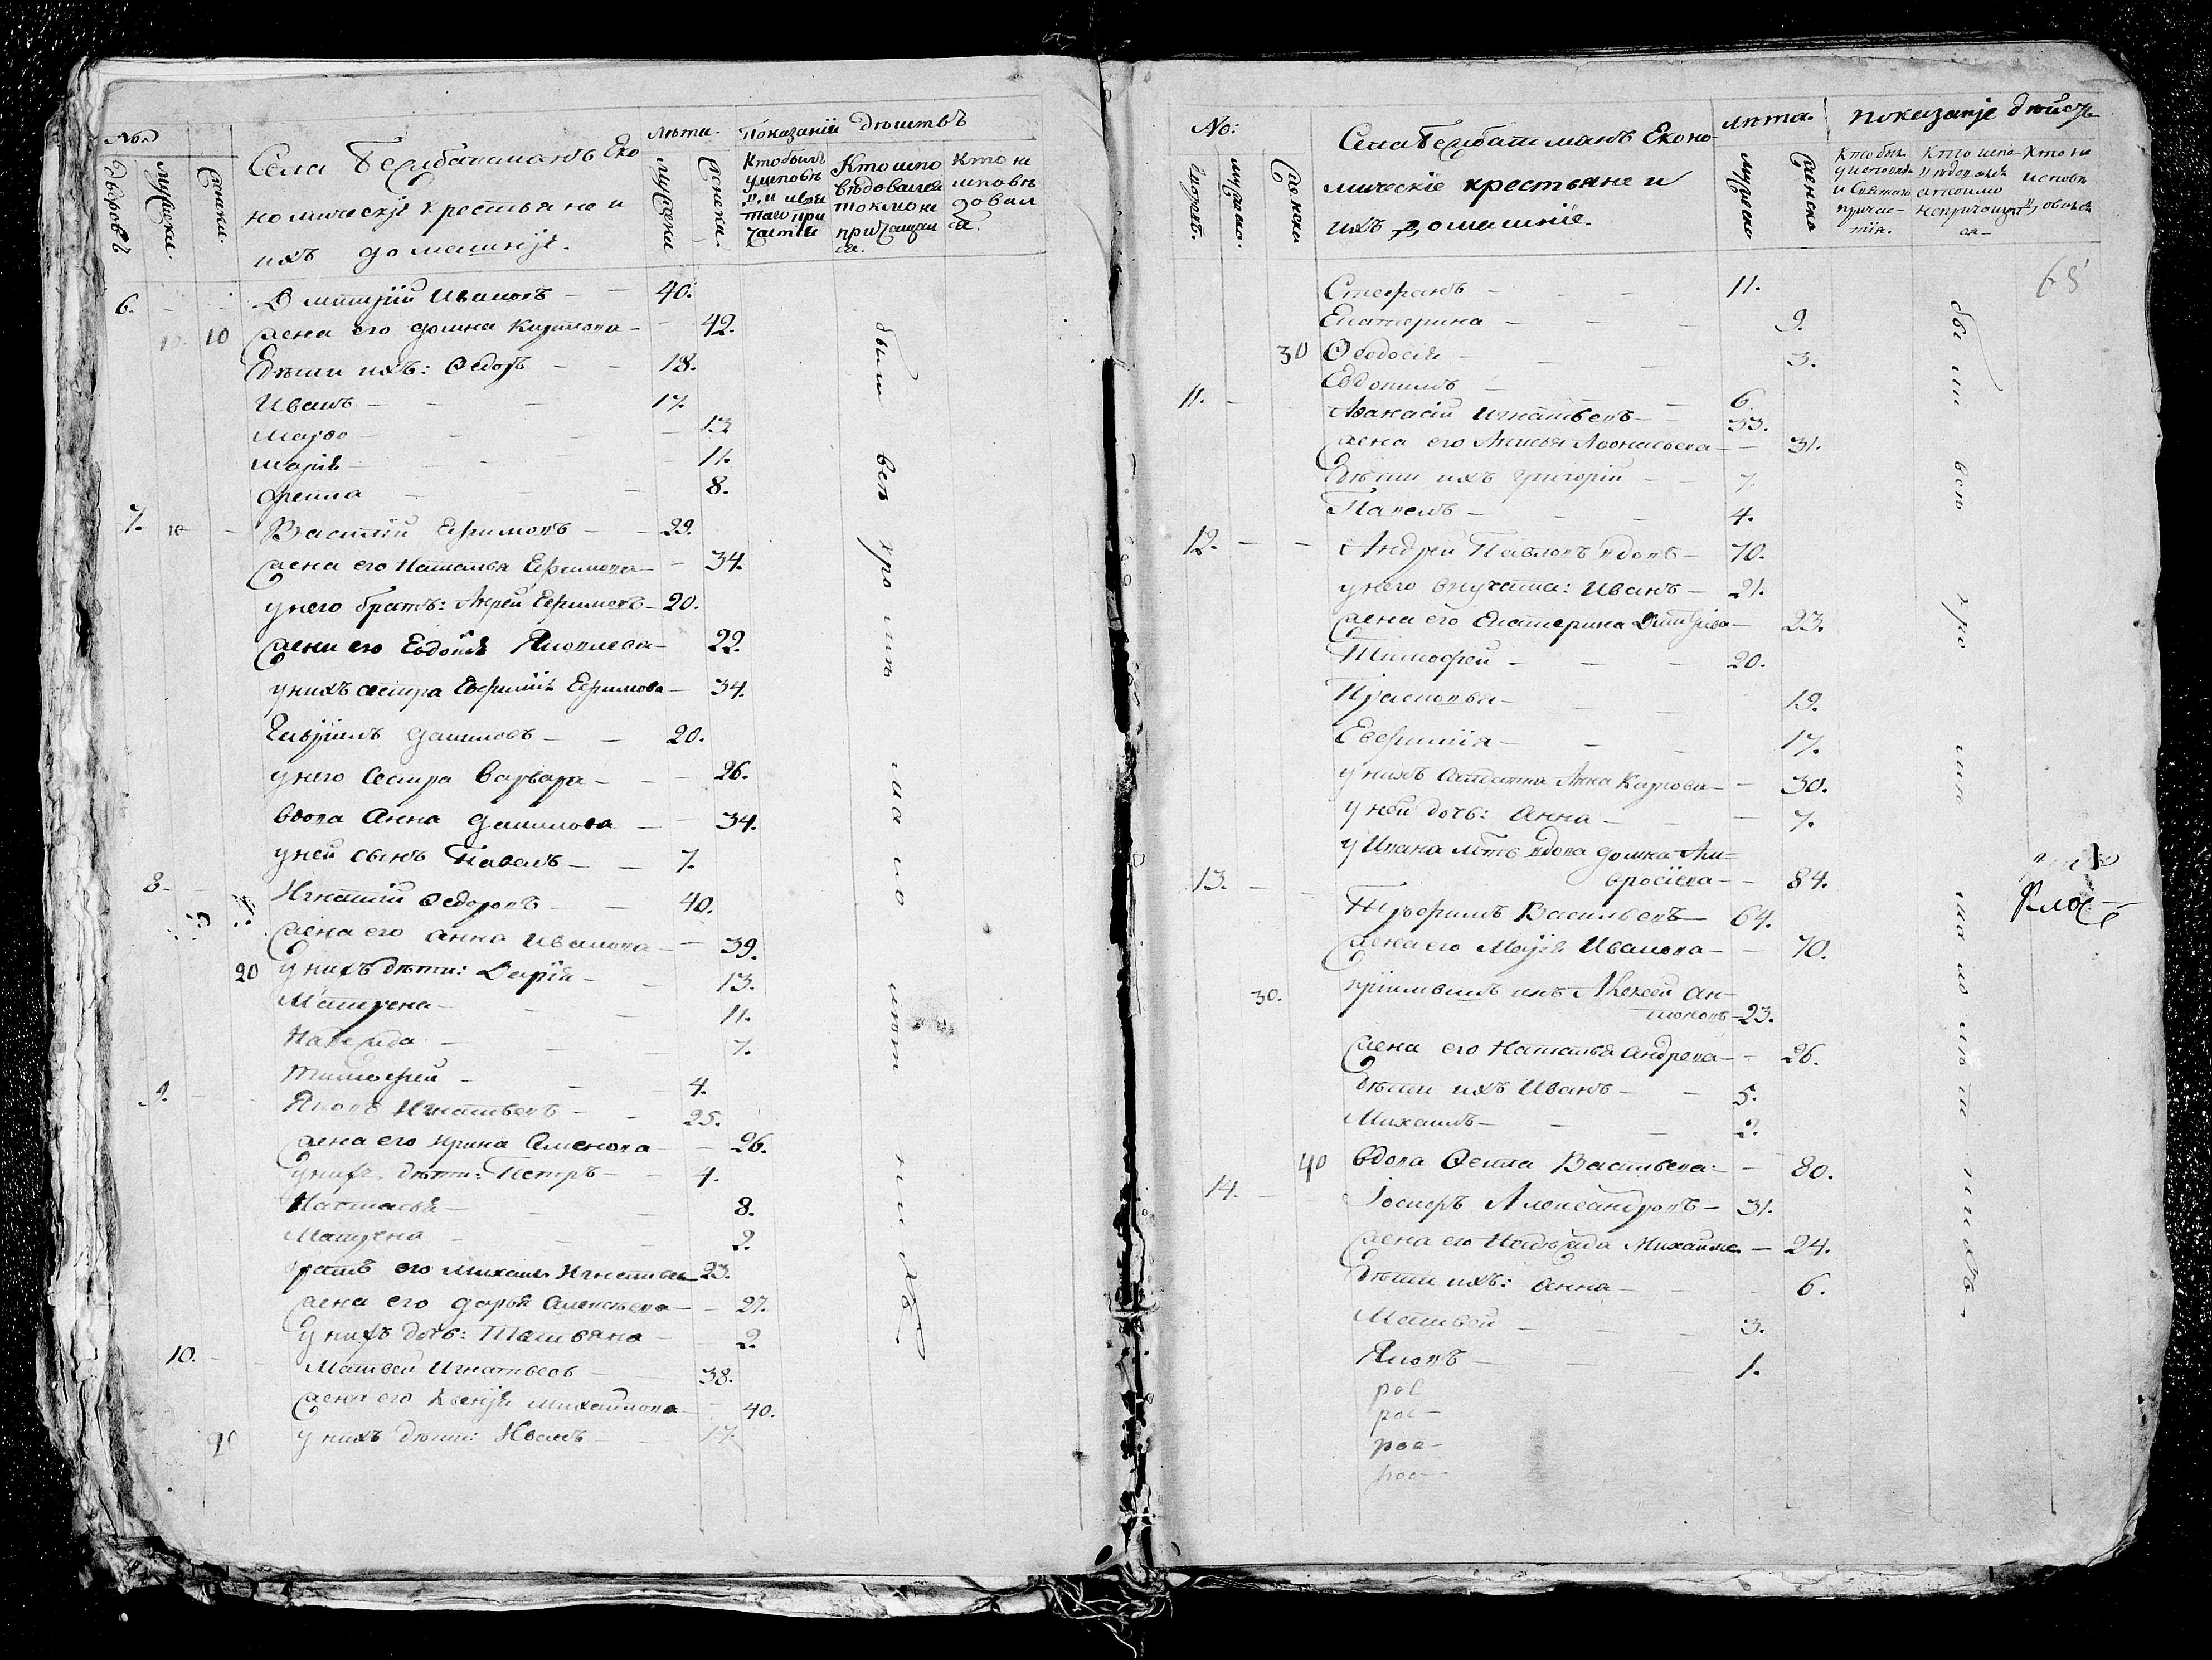 No:
дворовъ
мужеска.
женски.
Села Еко
номическіе крестьяне и
ихъ домашніе.
лѣта.
мужеска
женска.
Показаніи дѣиствъ
Кто былъ
у исповѣ
тыхъ при
частіи
Кто испо
вѣдовался
токмо не
причащал
ся.
Кто не
исповѣ
довал
ся.
6. Дмитріи Ивановъ 40.
10 жена его домна 42.
дѣти ихъ: Ѳедоръ 18.
Иванъ 17.
марѳа 13
марія 11.
8.
7. Василіи Ефимовъ 29.
жена его Наталья Ефимова 34.
у него братъ: Андреи Ефимовъ 20.
жена его Евдокія Яковлева 22.
у нихъ сестра Евфимія Ефимова 34.
Гавріилъ даниловъ 20.
у него сестра варвара 26.
вдова Анна данилова 34.
у неи сынъ Павелъ 7.
8 Игнатіи Ѳедоровъ 40.
жена его анна Иванова 39.
20 у нихъ дѣти: Дарія 13.
Матрена 11.
Надежда 7.
Тимоѳеи 4.
9. Яковъ Игнатьевъ 25.
жена его Ирина Семенова 26.
у нихъ дѣти: Петръ 4.
Настасья 8.
Матрена 2.
братъ его Михаилъ Игнатьевъ 23.
жена его дарья Алексѣева 27.
у нихъ дочь: Татьяна 2.
10. Матвеи Игнатьевъ 38.
жена его Ксенія михаилова 40.
у нихъ дѣти: Иванъ 17.
были всѣ кромѣ малолѣтнихъ
No:
дворовъ.
мужеско.
женско
Села Еконо
мическіе крестьяне и
ихъ домашніе.
лѣта.
мужеско
женско
показаніе дѣйств
Кто былъ
у исповѣди
и святаго
причас-
тія.
Кто испо-
вѣдовался
а токмо
не причащал
ся
Кто не
исповѣ
довался
68
Стефанъ 11.
Екатерина 9.
30 Ѳеодосія 3.
Евдокимъ 6
11. Аѳанасіи Игнатьевъ 33.
жена его Анисья Аѳонасьева 31.
дѣти ихъ григоріи 7.
Павелъ 4.
12. Андреи Павловъ вдовъ 70.
у него внучата: Иванъ 21.
жена его Екатерина Дмитріева 23.
Тимоѳеи 20.
Прасковья 19.
Евфимія 17.
у нихъ салдатка Анна Карпова 30.
у неи дочь: анна 7.
у Ивана мать вдова домна Ам-
вросіева 84.
13. Трофимъ Васильевъ 64.
жена его Марія Иванова 70.
30. пріимышъ ихъ Алексеи ан-
тоновъ 23.
жена его Наталья андреева 26.
дѣти ихъ Иванъ 5.
Михаилъ 2.
40 вдова Ѳекла Васильева 80.
14. Іосифъ Александровъ 31.
жена его Надежда Михаилова 24.
дѣти ихъ: анна 6.
Матвеи 3.
Яковъ 1.
рос
рос
рос
рос
были всѣ кромѣ малолѣтнихъ